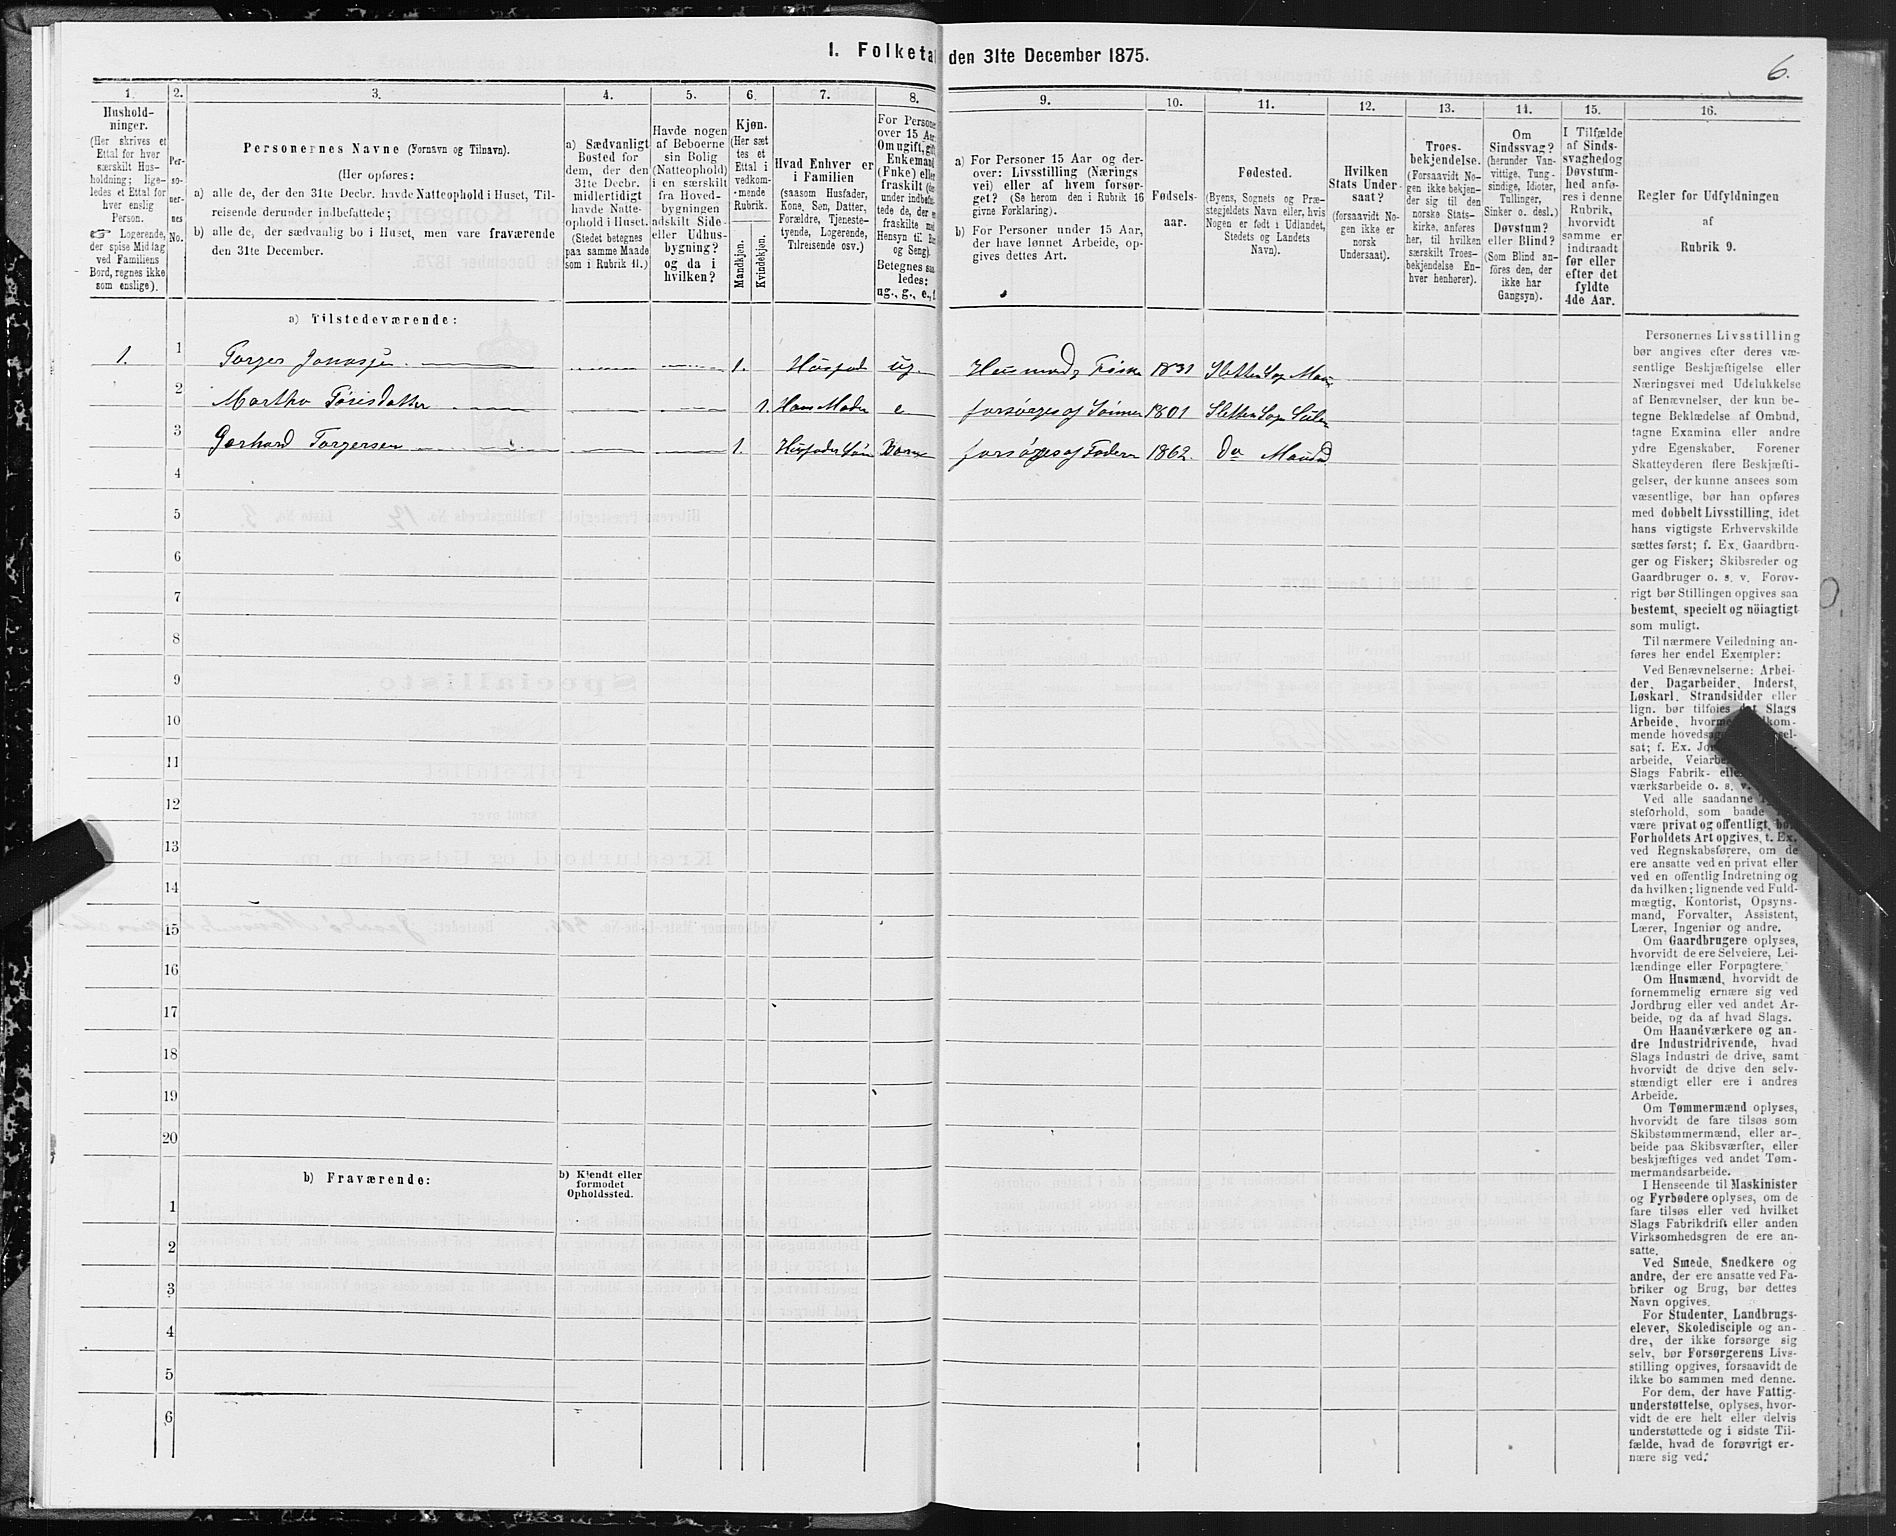 I. Folketal den 31te December 1875.
6.
1.
Hushold-
ninger.
(Her skrives et
Ettal for hver
særskilt Hus-
holdning; lige-
ledes et Ettal for
hver enslig
Person.
☞ Logerende,
der spise Middag
ved Familiens
Bord, regnes ikke
som enslige).
2.
Per-
so-
ner-
nes
No.
3.
Personernes Navne (Fornavn og Tilnavn).
(Her opføres:
a) alle de, der den 31te Decbr. havde Natteophold i Huset, Til-
reisende derunder indbefattede;
b) alle de, der sædvanlig bo i Huset, men vare fraværende
den 31te December.
4.
a) Sædvanligt
Bosted for
dem, der den
31te Decbr.
midlertidigt
havde Natte-
ophold i Huset.
(Stedet betegnes
paa samme Maade
som i Rubrik 11.)
5.
Havde nogen
af Beboerne
sin Bolig
(Natteophold)
i en særskilt
fra Hoved-
bygningen
adskilt Side-
eller Udhus-
bygning?
og da i
hvilken?
6.
Kjøn.
(Her sæt
tes et
Ettal i
vedkom-
mende
Rubrik.
Mandkjøn.
Kvindekjøn.
7.
Hvad Enhver er
i Familien
(saasom Husfader,
Kone, Søn, Datter,
Forældre, Tjeneste-
tyende, Logerende,
Tilreisende osv.)
8.
For Persone
over 15 Aar
Om ugift, gift,
Enkemand
(Enke) eller
fraskilt (der-
under indbefat-
tede de, der e
fraskilte med
Hensyn til Bor
og Seng).
Betegnes saa
ledes:
ug., g., e., f.
9.
a) For Personer 15 Aar og der-
over: Livsstilling (Nærings
vei) eller af hvem forsør-
get? (Se herom den i Rubrik 16
givne Forklaring).
b) For Personer under 15 Aar,
der have lønnet Arbeide, op-
gives dettes Art.
10.
Fødsels-
aar.
11.
Fødested.
(Byens, Sognets og Præ-
stegjeldets Navn eller, hvis
Nogen er født i Udlandet,
Stedets og Landets
Navn).
12.
Hvilken
Stats Under-
saat?
(forsaavidt No-
gen ikke er
norsk
Undersaat).
13.
Troes-
bekjendelse.
(Forsaavidt No-
gen ikke bekjen-
der sig til den
norske Stats-
kirke, anføres
her, til hvilken
særskilt Troes-
bekjendelse En-
hver henhører).
14.
Om
Sindssvag?
(herunder Van-
vittige, Tung-
sindige, Idioter,
Tullinger,
Sinker o. desl.)
Døvstum?
eller Blind?
(Som Blind an-
føres den, der
ikke har
Gangsyn).
15.
I Tilfælde
af Sinds-
svaghed og
Døvstum-
hed anfø-
res i denne
Rubrik,
hvorvidt
samme er
indtraadt
før eller
efter det
fyldte
4de Aar.
16.
Regler for Udfyldningen
af
Rubrik 9.
a) Tilstedeværende:
1. 1 Torger Jonassen 1. Husfad ug. Husmand, Fisker 1831
2 Martha Tørisdatter 1. Hans Moder e forsørges af Sønnen 1801
3 Gerhard Torgersen 1. Husfaders Søn forsørges af Faderen 1862. do
4
5
6
7
8
9
10
11
12
13
14
15
16
17
18
19
20
b) Fraværende:
b) Kjendt eller
formodet
Opholdssted.
1
2
3
4
5
6
Personernes Livsstilling
bør angives efter deres væ-
sentlige Beskjæftigelse eller
Næringsvei med Udelukkelse
af Benævnelser, der kun be-
tegne Beklædelse af Ombud,
tagne Examina eller andre
ydre Egenskaber. Forener
Skatteyderen flere Beskjæfti-
gelser, der kunne ansees som
væsentlige, bør han opføres
med dobbelt Livsstilling, idet
hans vigtigste Erhvervskilde
sættes først; f. Ex. Gaardbru-
ger og Fisker; Skibsreder og
Gaardbruger o. s. v. Forøv-
rigt bør Stillingen opgives saa
bestemt, specielt og nöiagtigt
som muligt.
Til nærmere Veiledning an-
føres her endel Exempler:
Ved Benævnelserne: Arbei-
der, Dagarbeider, Inderst,
Løskarl, Strandsidder eller
lign. bør tilføies det Slags
Arbeide, hvormed Vedkom-
mende hovedsa
sat; f. Ex. Jor
arbeide, Veiarbe
Slags Fabrik- elle
værksarbeide o. s. v.
Ved alle saadanne
steforhold, som baade
være privat og offentligt, bør
Forholdets Art opgives, t. Ex.
ved Regnskabsførere, om de
ere ansatte ved en privat eller
ved en offentlig Indretning og
da hvilken; lignende ved Fuld-
mægtig, Kontorist, Opsyns-
mand, Forvalter, Assistent,
Lærer, Ingeniør og andre.
Om Gaardbrugere oplyses,
hvorvidt de ere Selveiere, Lei-
lændinge eller Forpagtere.
Om Husmænd, hvorvidt de
fornemmelig ernære sig ved
Jordbrug eller ved andet Ar-
beide, og da af hvad Slags.
Om Haandværkere og an-
dre Industridrivende, hvad
Slags Industri de drive, samt
hvorvidt de drive den selv-
stændigt eller ere i andres
Arbeide.
Om Tømmermænd oplyses,
hvorvidt de fare tilsøs som
Skibstømmermænd, eller ar-
beide paa Skibsværfter, eller
beskjæftiges ved andet Tøm-
mermandsarbeide.
I Henseende til Maskinister
og Fyrbødere oplyses, om de
fare tilsøs eller ved hvilket
Slags Fabrikdrift eller anden
Virksomhedsgren de ere an-
satte.
Ved Smede, Snedkere og
andre, der ere ansatte ved Fa-
briker og Brug, bør dettes
Navn opgives.
For Studenter, Landbrugs-
elever, Skoledisciple og an-
dre, der ikke forsørge sig
selv, bør Forsørgerens Livs-
stilling opgives, forsaavidt de
ikke bo sammen med denne.
For dem, der have Fattig-
understøttelse, oplyses, hvor-
vidt de ere helt eller delvis
understøttede og i sidste Til-
fælde, hvad de forøvrigt er-
nære sig ved.